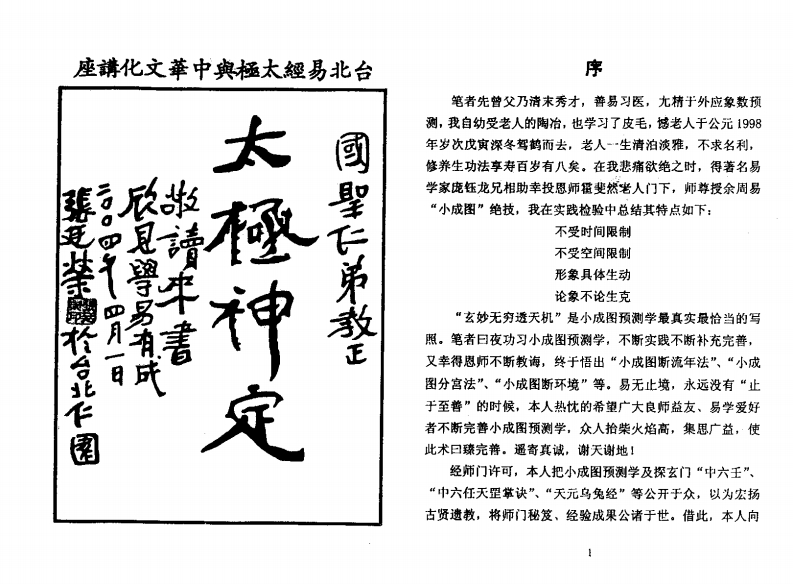 台北易經太極與中華文化講座
國聖仁弟教正
太極神定
敬讀來書
欣見學易有成
二〇〇四年四月一日
張廷榮 於台北仁園
序
笔者先曾父乃清末秀才，善易习医，尢精于外应象数预
测，我自幼受老人的陶冶，也学习了皮毛，憾老人于公元 1998
年岁次戊寅深冬驾鹤而去，老人一生清泊淡雅，不求名利，
修养生功法享寿百岁有八矣。在我悲痛欲绝之时，得著名易
学家庞钰龙兄相助幸投恩师霍斐然老人门下，师尊授余周易
“小成图”绝技，我在实践检验中总结其特点如下：
不受时间限制
不受空间限制
形象具体生动
论象不论生克
“玄妙无穷透天机”是小成图预测学最真实最恰当的写
照。笔者曰夜功习小成图预测学，不断实践不断补充完善，
又幸得恩师不断教诲，终于悟出“小成图断流年法”、“小成
图分宫法”、“小成图断环境”等。易无止境，永远没有“止
于至善”的时候，本人热忱的希望广大良师益友、易学爱好
者不断完善小成图预测学，众人抬柴火焰高，集思广益，使
此术曰臻完善。遥寄真诚，谢天谢地！
经师门许可，本人把小成图预测学及探玄门“中六壬”、
“中六任天罡掌诀”、“天元乌兔经”等公开于众，以为宏扬
古贤遗教，将师门秘笈、经验成果公诸于世。借此，本人向
1